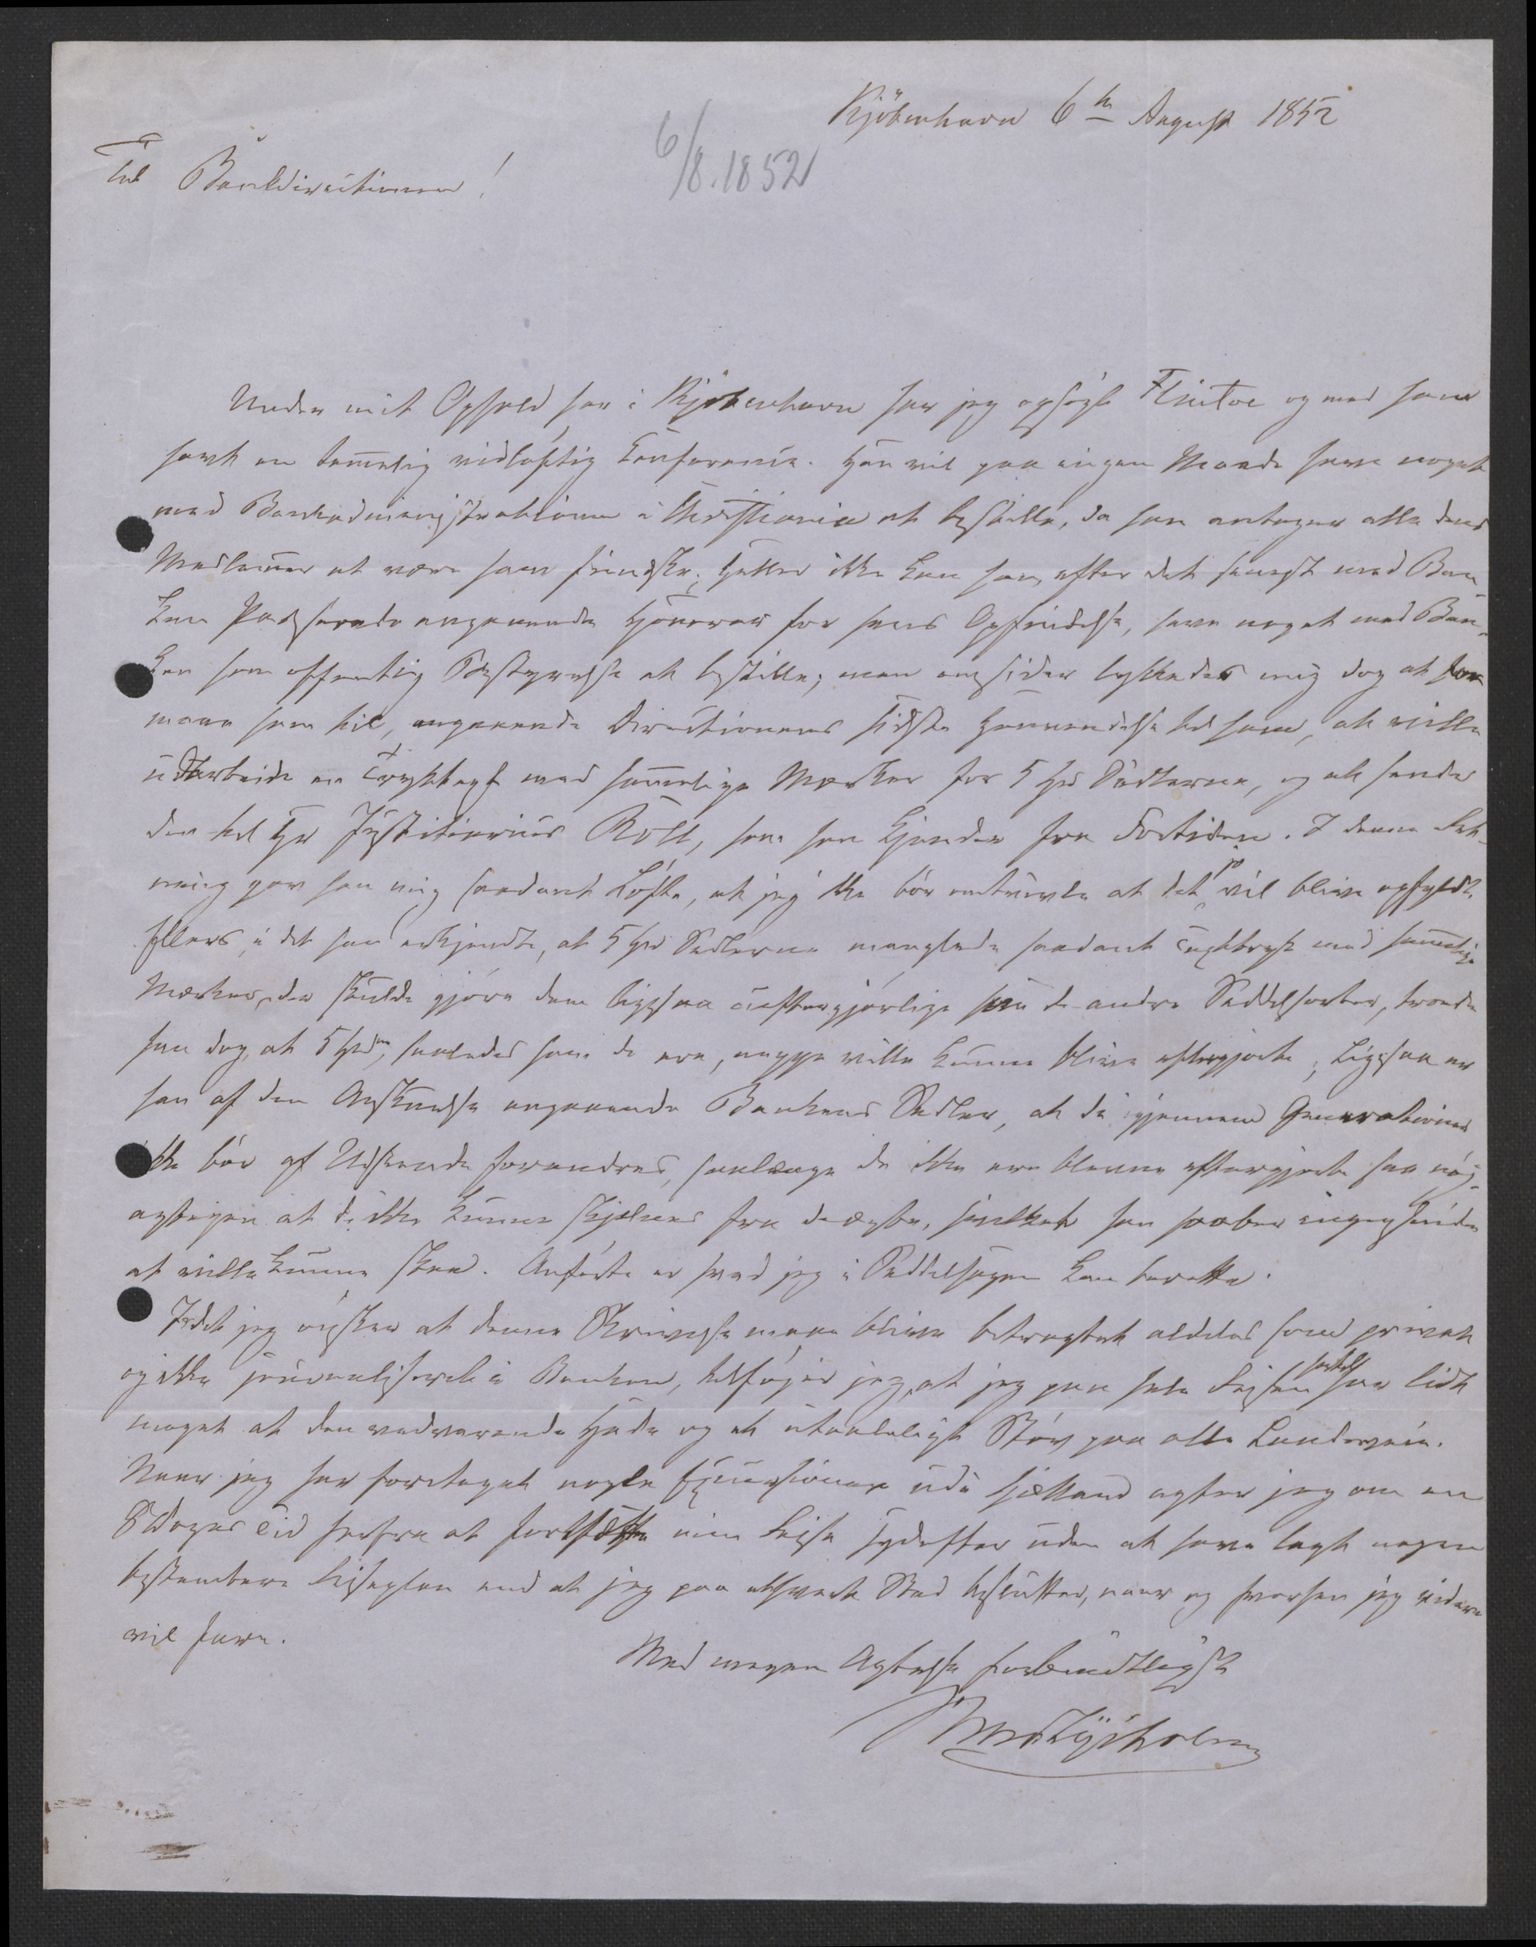 Kjöbenhavn 6te August 1852
6/8.1852
Til Bankdirectionen!
Under mit Ophold her i Kjöbenhavn har jeg opsögt Flintoe og med ham
havt en temmelig vidlöftig Conferentse. Han vil paa ingen Maade have noget
med Bankadministrationen i Christiania at bestille, da han antager alle dens
Medlemmer at være ham fiendske; heller ikke kan han, efter det senest med Ban-
ken Passerede angaaende Honorar for hans Opfindelse, have noget med Ban-
ken som offentlig Bestyrelse at bestille; men omsider lykkedes mig dog at for
maae ham til, angaaende Directionens sidste Henvendelse til ham, at ville
udarbeide en Trykkegt med hemmelige Mærker for 5 Spd Sedlerne, og at sende
den til Hr Justitiarius Roll, som han kjender fra Fortiden. I denne Ret-
ning gav han mig saadant Löfte, at jeg ikke bör omtvivle at det jo vil blive opfyldt.
Ellers, i det han erkjendte, at 5 Spd Sedlerne manglede saadant Tagttryk med hemmelige
Mærker, der skulde gjöre dem ligesaa uefterggjörlige som de andre Seddelsorter, troede
han dog, at 5 Spd, saaledes som de ere, neppe ville kunne blive eftergjorte; Ligesaa er
han af den Anskuelse angaaende Bankens Sedler, at de igjennem Generationer
ikke bör af Udseende forandres, saalænge de ikke ere blevne eftergjorte saa nöj-
agtigen at de ikke kunne skjelnes fra de ægte, hvilket han haaber ingensinde
at ville kunne skee. Anförte er hvad jeg i Seddelsagen kan berette.
Idet jeg önsker at denne Skrivelse maae blive betragtet aldeles som privat
og ikke journaliseret i Banken, tilföjer jeg, at jeg paa hele Rejsen hidtil har lidt
meget at den vedvarende Hede og et utaaleligt Stöv paa alle Landeveie.
Naar jeg har foretaget nogle Excursioner ude i Sjelland agter jeg om en
8 Dages Tid herfra at fortsætte min Rejse sydefter uden at have lagt nogen
bestemtere Rejseplan end at jeg paa ethvert Sted beslutter, naar og hvorhen jeg videre
vil fare.
Med megen Agtelse forbindtligst